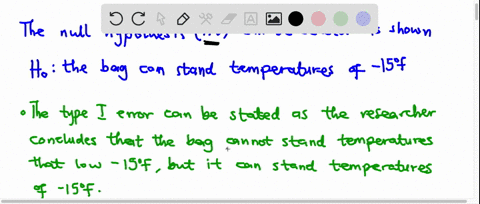 The null hypothesis is shown
H₀: the bag can stand temperatures of -15°F
• The type I error can be stated as the researcher
concludes that the bag cannot stand temperatures
that low -15°F, but it can stand temperatures
of -15°F.